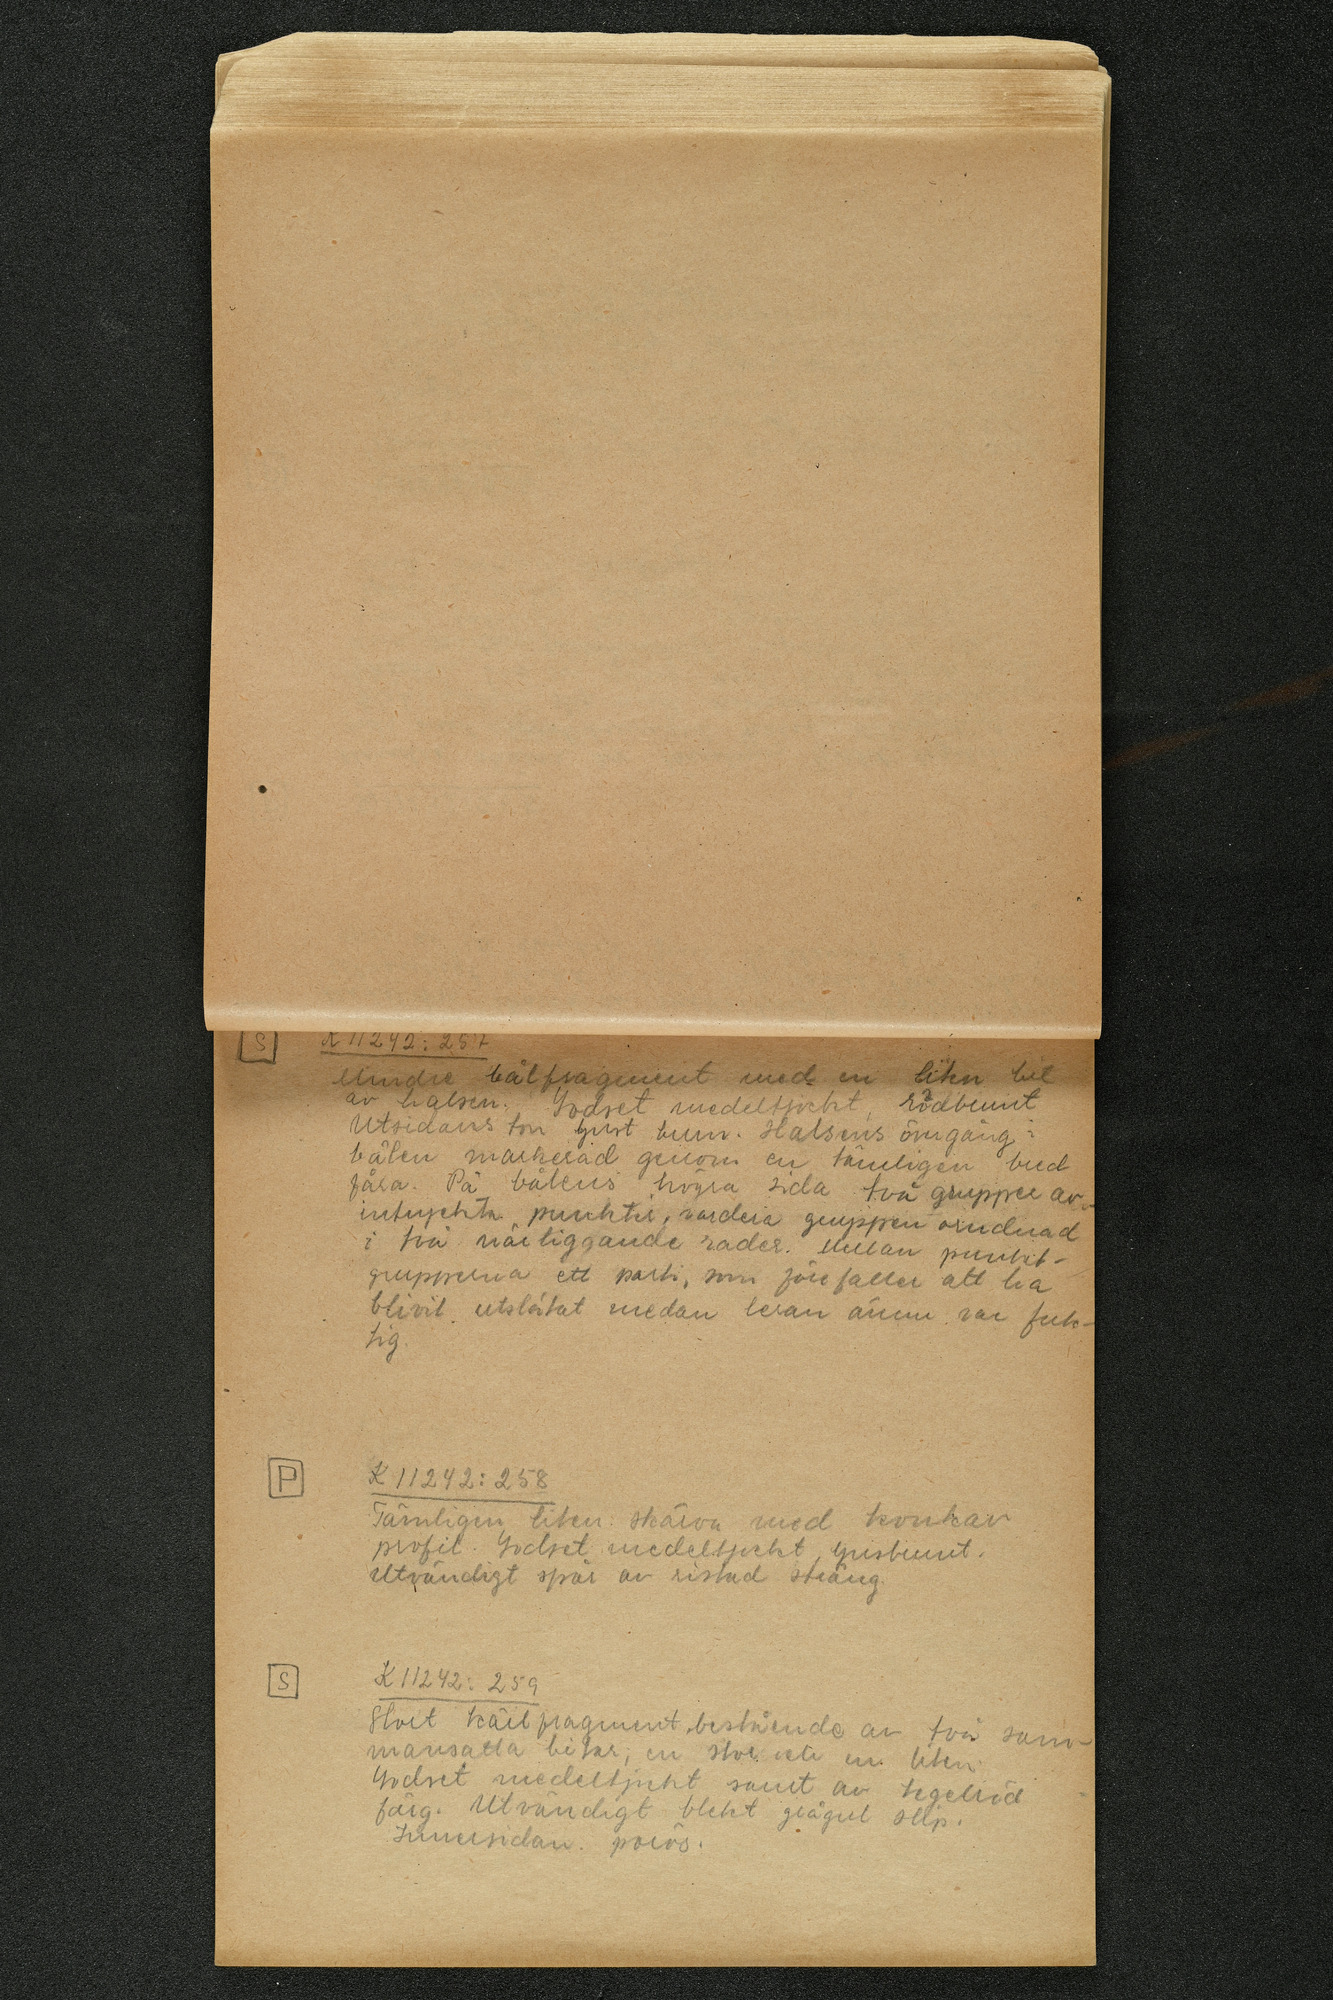 S K 11242:257
Mindre bålfragment med en liten bit
av halsen. Godset medeltjockt, rödbrunt
Utsidans ton ljust brun. Halsens övergång i
bålen markerad genom en tämligen bred
fåra. På bålens högra sida två grupper av
intryckta punkter, vardera gruppen ordnad
i två närliggande rader. Mellan punkt-
grupperna ett parti, som förefaller att ha
blivit utslätat medan leran ännu var fuk-
tig.
P K 11242:258
Tämligen liten skärva med konkav
profil. Godset medeltjockt, grisbrunt.
Utvändigt spår av ristad sträng
S K 11242:259
Stort kärlfragment bestående av två sam-
mansatta bitar, en stor och en liten
Godset medeltjockt samt av tegelröd
färg. Utvändigt blekt grågul slip.
Innersidan porös.